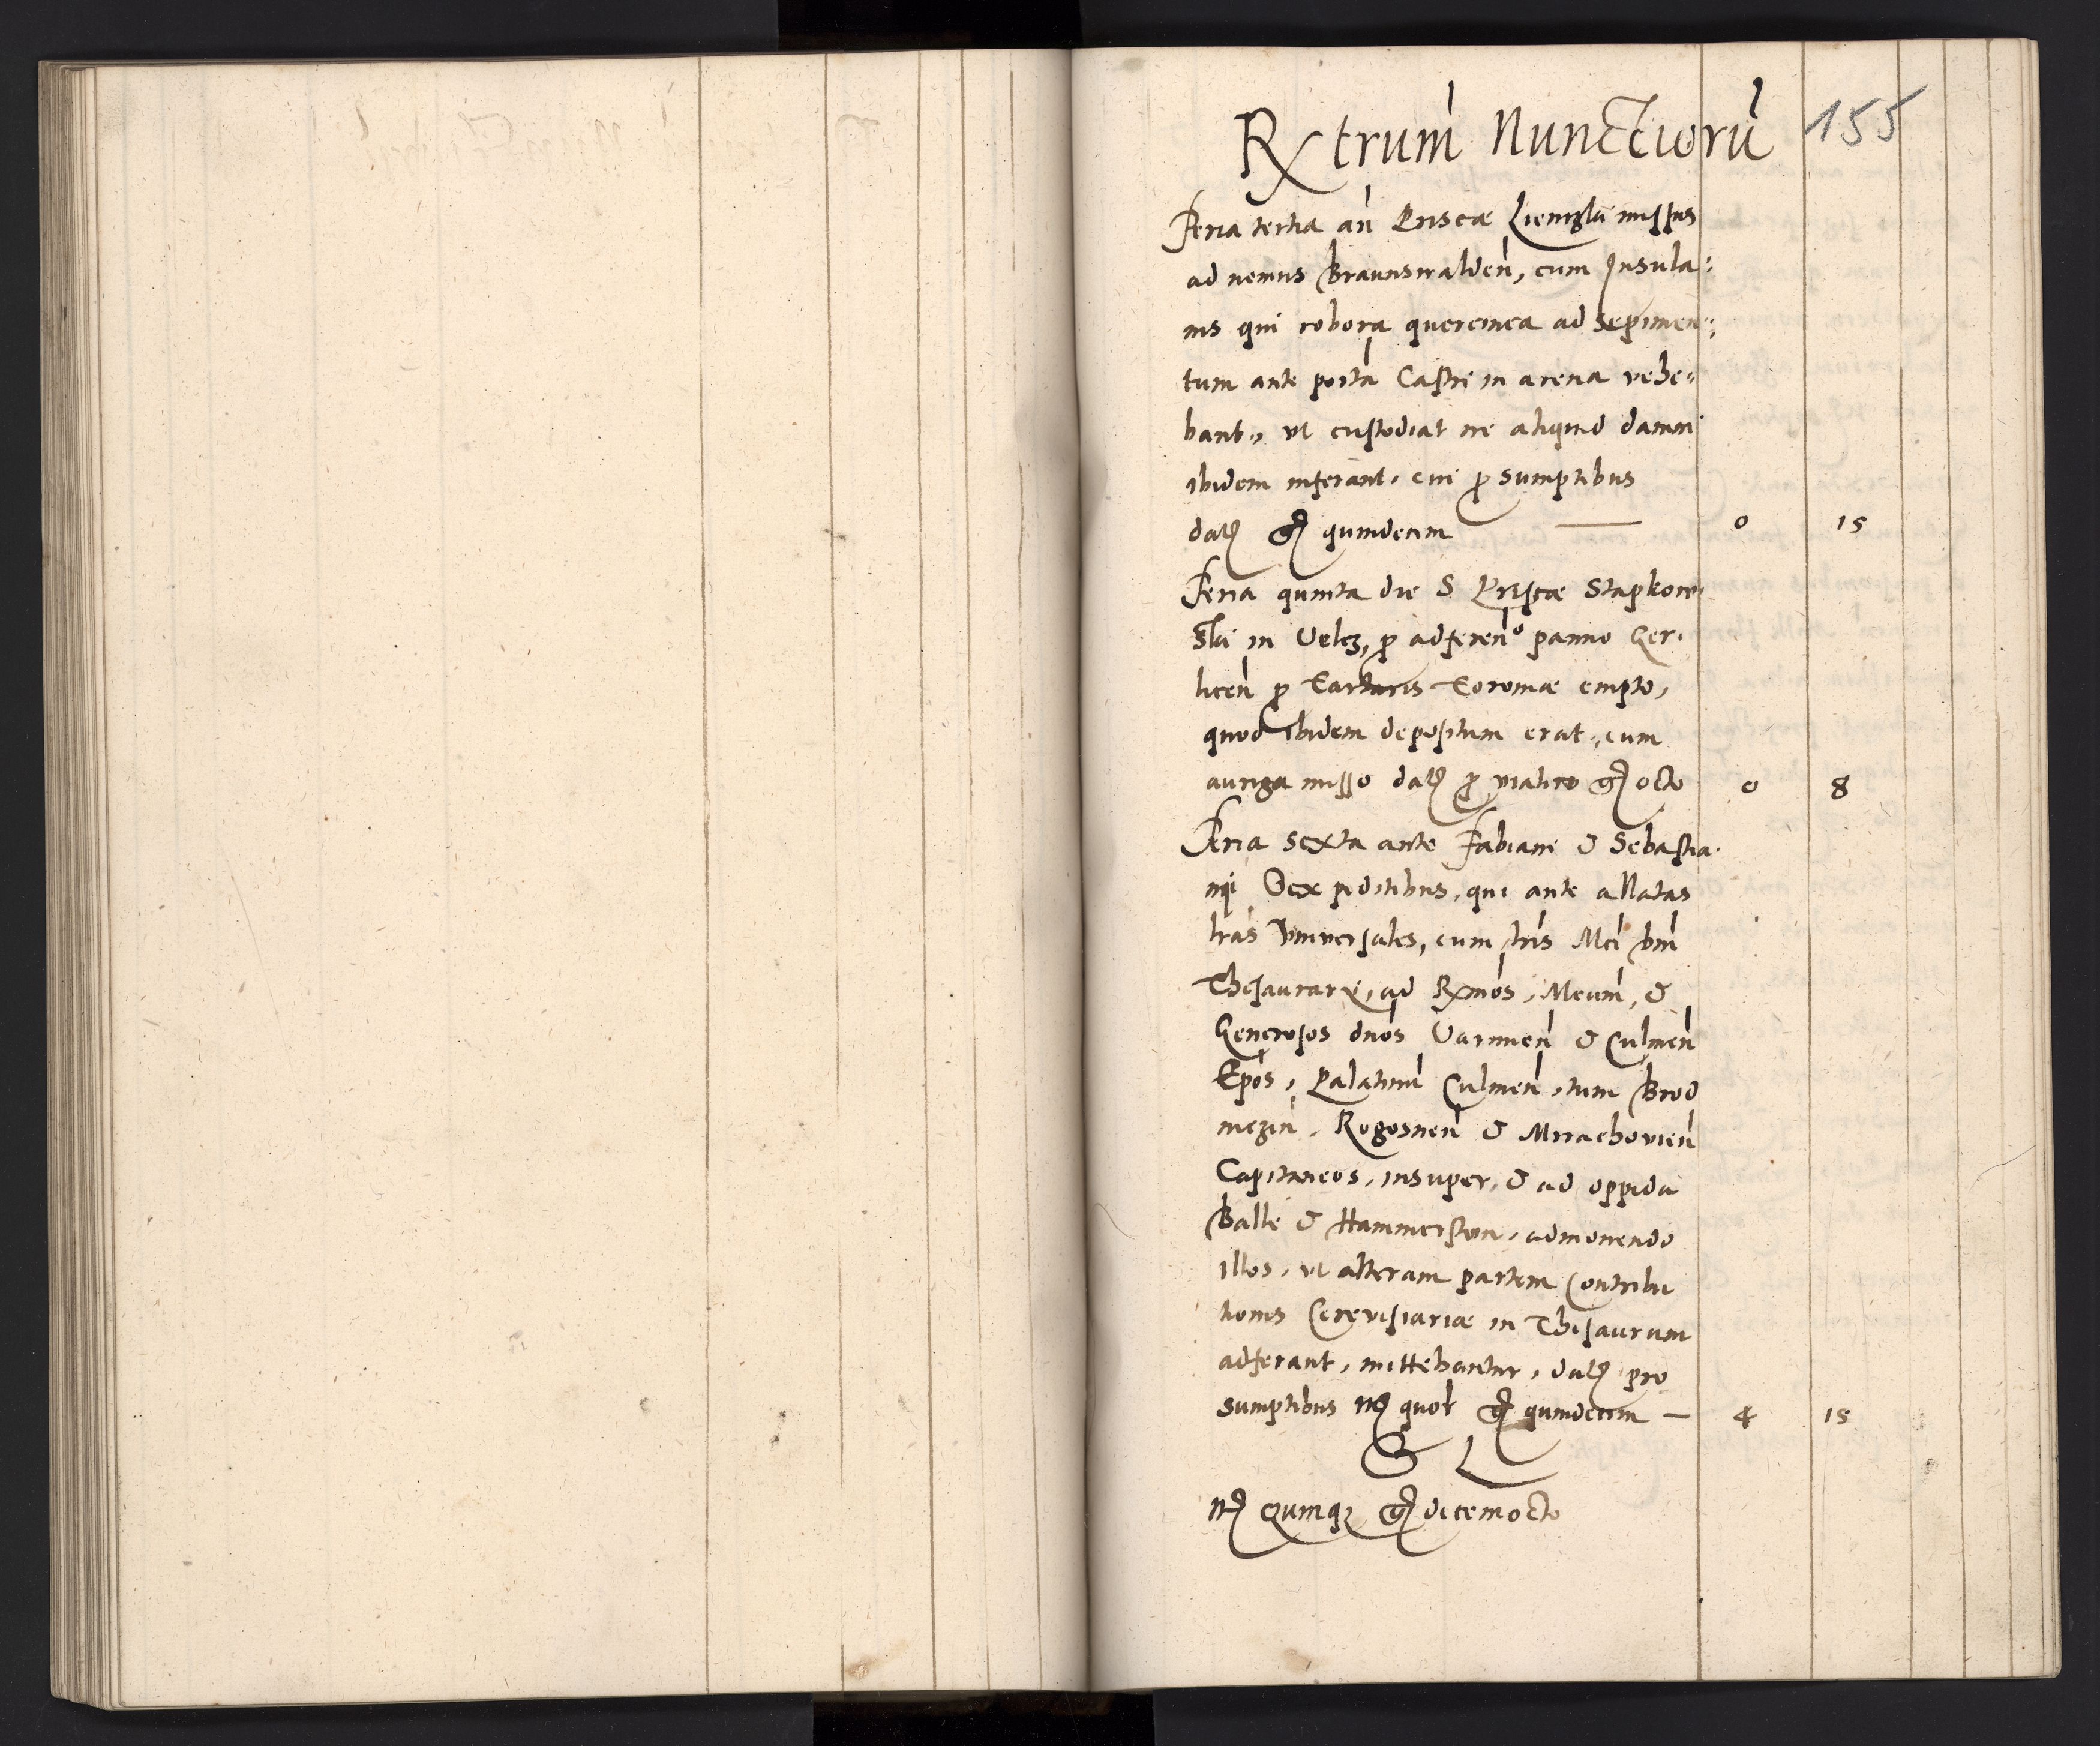 155
Rxtrum Nunctiorū
Feria tertia an̄ Priscæ Liemgła missus
ad nemus Braunswalden̄, cum Insula:
nis qui robora quercinea ad sepimen:
tum ante portā Castri in arena vehe:
bant, ut custodiat ne aliquid damni
ibidem inferant, cui ꝑ sumptibus
dat gr quindecim — 0 15
Feria quinta die S Priscæ Stapkow:
in Uelcz, ꝑ adferen̄o panno Ger:
licen̄ ꝑ Tartaris Coroniæ empto,
quod ibidem depositum erat, cum
auriga misso dat ꝑ viatico gr octo 0 8
Feria sexta ante Fabiani & Sebastia:
ni Sex peditibus, qui ante allatas
lrās Vniversales, cum lrīs Mci Dni
Thesaurarÿ, ad Rxmos, Mcum, &
Generosos dnos Varmien̄ & Culmen̄
Epos, Palatinū Culmen̄, tum Brod
niczen̄, Rogosnen̄ & Mirachovien̄
Capitaneos, insuper, & ad oppida
Balle & Hammerstein, admonendo
illos, ut alteram partem Contribu
tionis Cerevisiariæ in Thesaurum
adferant, mittebantur, dat pro
sumptibus mr quot gr quindecim — 4 15
mr Quinqꝫ gr decemocto